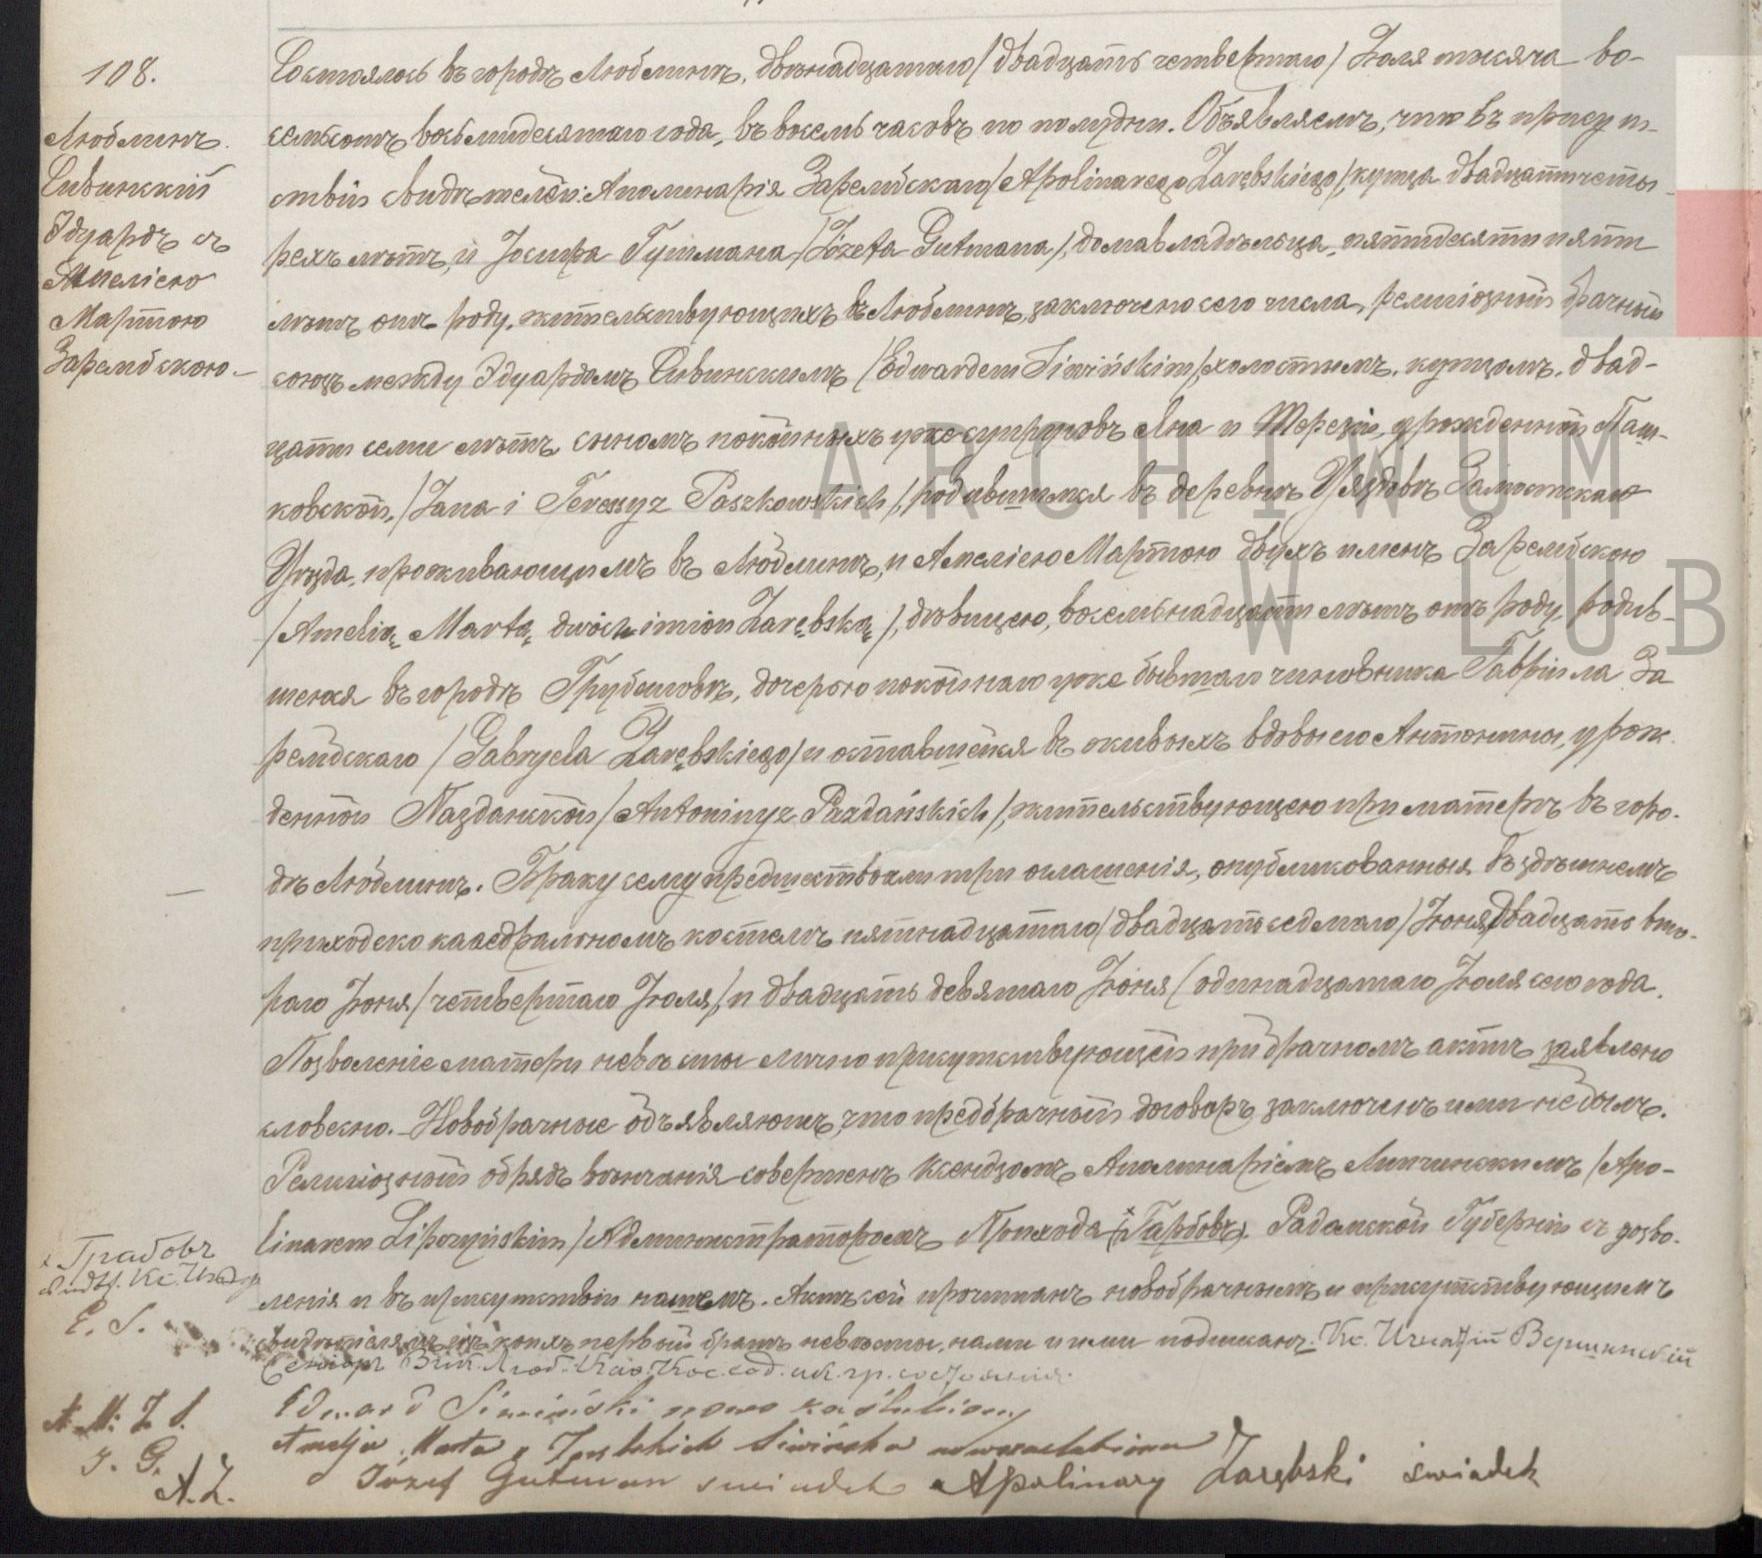 108.
Люблинъ.
Сивинскій
Эдуардъ съ
Амеліею
Мартою
Зарембскою
Состоялось въ городѣ Люблинѣ, двѣнадцатаго /двадцать четвертаго/ Іюля тысяча во-
семьсотъ восьмидесятаго года, въ восемь часовъ по полудни. Объявляемъ, что въ присут-
ствіи свидѣтелей: Аполинарія Зарембскаго /Apolinarego Zarębskiego/, купца двадцатичеты-
рехъ лѣтъ, и Іосифа Гутмана /Józefa Gutmana/, домавладѣльца, пятидесяти пяти
лѣтъ отъ роду, жительствующихъ въ Люблинѣ, заключенъ сего числа, религіозный брачный
союзъ между Эдуардомъ Сивинскимъ /Edwardem Siwińskim/, холостымъ, купцомъ, двад-
цати семи лѣтъ, сыномъ покойныхъ уже супруговъ Яна и Терезіи, урожденной Паш-
ковской, /Jana i Teressy z Paszkowskich/, родившимся въ деревнѣ Уяздовъ Замостскаго
Уѣзда, проживающимъ въ Люблинѣ, и Амеліею Мартою двухъ именъ Зарембскою
/Amelią Martą dwóch imion Zarębską/, дѣвицею, восемьнадцати лѣтъ отъ роду, родив-
шеюся въ городѣ Грубешовѣ, дочерью покойнаго уже бывшаго чиновника Габріила За
рембскаго /Gabryela Zarębskiego/ и оставшейся въ живыхъ вдовы его Антонины, урож-
денной Пазданской /Antoniny z Pazdańskich/, жительствующею при матерѣ въ горо-
дѣ Люблинѣ. Браку сему предшествовали три оглашенія, опубликованныя въ здѣшнемъ
приходско каѳедральномъ костелѣ пятнадцатаго /двадцать седмаго/ Іюня, двадцать вто-
раго Іюня /четвертаго Іюля/, и двадцать девятаго Іюня /одинадцатаго Іюля сего года.
Позволеніе матери невѣсты лично присутствующей при брачномъ актѣ заявлено
словесно. Новобрачные объявляютъ, что предбрачный договоръ заключенъ ими не былъ.
Религіозный обрядъ вѣнчанія совершенъ Ксендзомъ Аполинаріемъ Липчинскимъ /Apo-
linarem Lipczyńskim/ Администраторомъ Прихода (×Гарбовъ) Радомской Губерніи съ дозво-
× Грабовъ
ленія и въ присутствіи нашемъ. Актъ сей прочитанъ новобрачнымъ и присутствующимъ
E. S.
свидѣтелямъ изъ коихъ первый братъ невѣсты, нами и ими подписанъ. Кс. Игнатій Вершинскій
Сеніоръ Вик. Люб. Каѳ. Кос. сод. ак. гр. состоянія.
Edward Siwiński nowo zaślubiony
A. M. Z. S.
Amelja Marta z Zarębskich Siwińska nowozaślubiona
J. G.
Józef Gutman świadek Apolinary Zarębski świadek
A. Z.
ARCHIWUM
W LUB